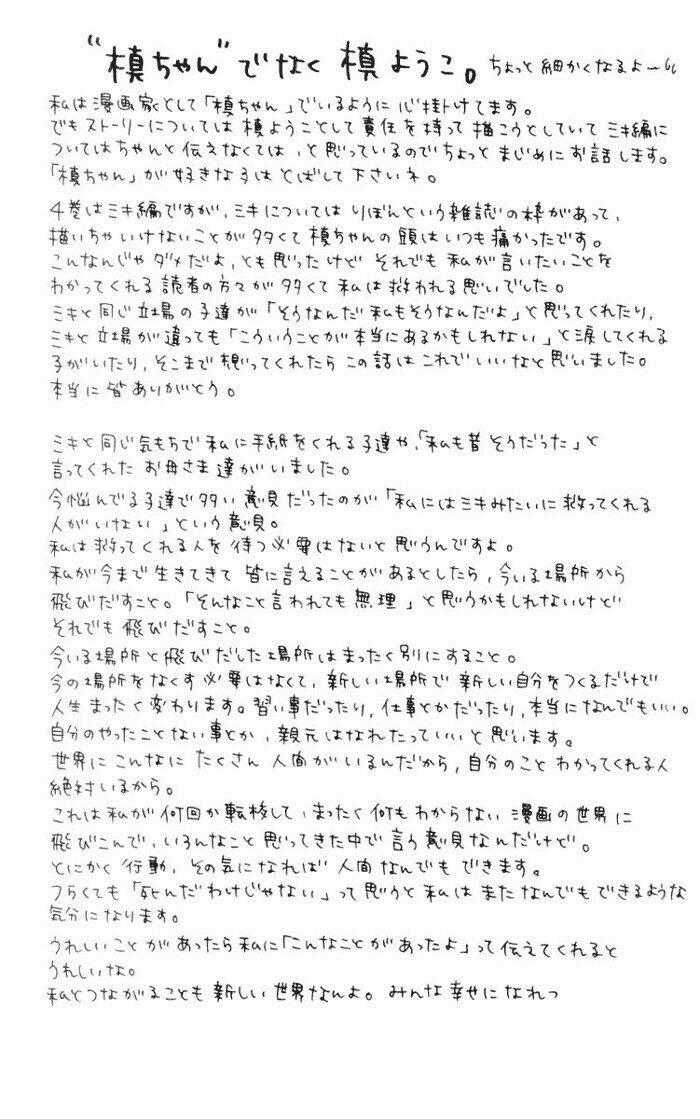 "槙ちゃん"でなく 槙ようこ。ちょっと細かくなるよー
私は漫画家として「槙ちゃん」でいるように心掛けてます。
でもストーリーについては 槙ようことして 責任を持って 描こうとしていて ミキ編に
ついてはちゃんと伝えなくては、と思っているのでちょっと まじめにお話します。
「槙ちゃん」が好きな子は とばして下さいネ。
4巻はミキ編ですが、ミキについては りぼんという雑誌の枠があって、
描いちゃいけないことが多くて 槙ちゃんの頭はいつも痛かったです。
こんなんじゃダメだよ、とも思ったけど それでも 私が言いたいことを
わかってくれる 読者の方々が多くて私は救われる思いでした。
ミキと同じ立場の子達が「そうなんだ 私もそうなんだよ」と思ってくれたり、
ミキと立場が違っても「こういうことが本当にあるかもしれない」と涙してくれる
子がいたり、そこまで想ってくれたら この話は これでいいなと思いました。
本当に皆ありがとう。
ミキと同じ気もちで私に手紙をくれる子達や、「私も昔そうだった」と
言ってくれた お母さま達がいました。
今悩んでる子達で多い意見だったのが「私にはミキみたいに救ってくれる
人がいない」という意見。
私は救ってくれる人を待つ必要はないと思うんですよ。
私が今まで生きてきて 皆に言えることがあるとしたら、今いる場所から
飛びだすこと。「そんなこと言われても無理」と思うかもしれないけど
それでも飛びだすこと。
今いる場所と飛びだした場所はまったく別にすること。
今の場所をなくす必要はなくて、新しい場所で 新しい自分をつくるだけで
人生まったく変わります。習い事だったり、仕事とかだったり、本当になんでもいい。
自分のやったことない事とか、親元はなれたっていいと思います。
世界にこんなに たくさん 人間がいるんだから、自分のこと わかってくれる人
絶対いるから。
これは私が何回か転校して、まったく何もわからない 漫画の世界に
飛びこんで、いろんなこと思ってきた中で言う意見なんだけど。
とにかく 行動、その気になれば 人間なんでもできます。
つらくても「死んだわけじゃない」って思うと私は またなんでもできるような
気分になります。
うれしいことがあったら私に「こんなことがあったよ」って伝えてくれると
うれしいな。
私とつながることも新しい世界なんよ。みんな幸せになれっ